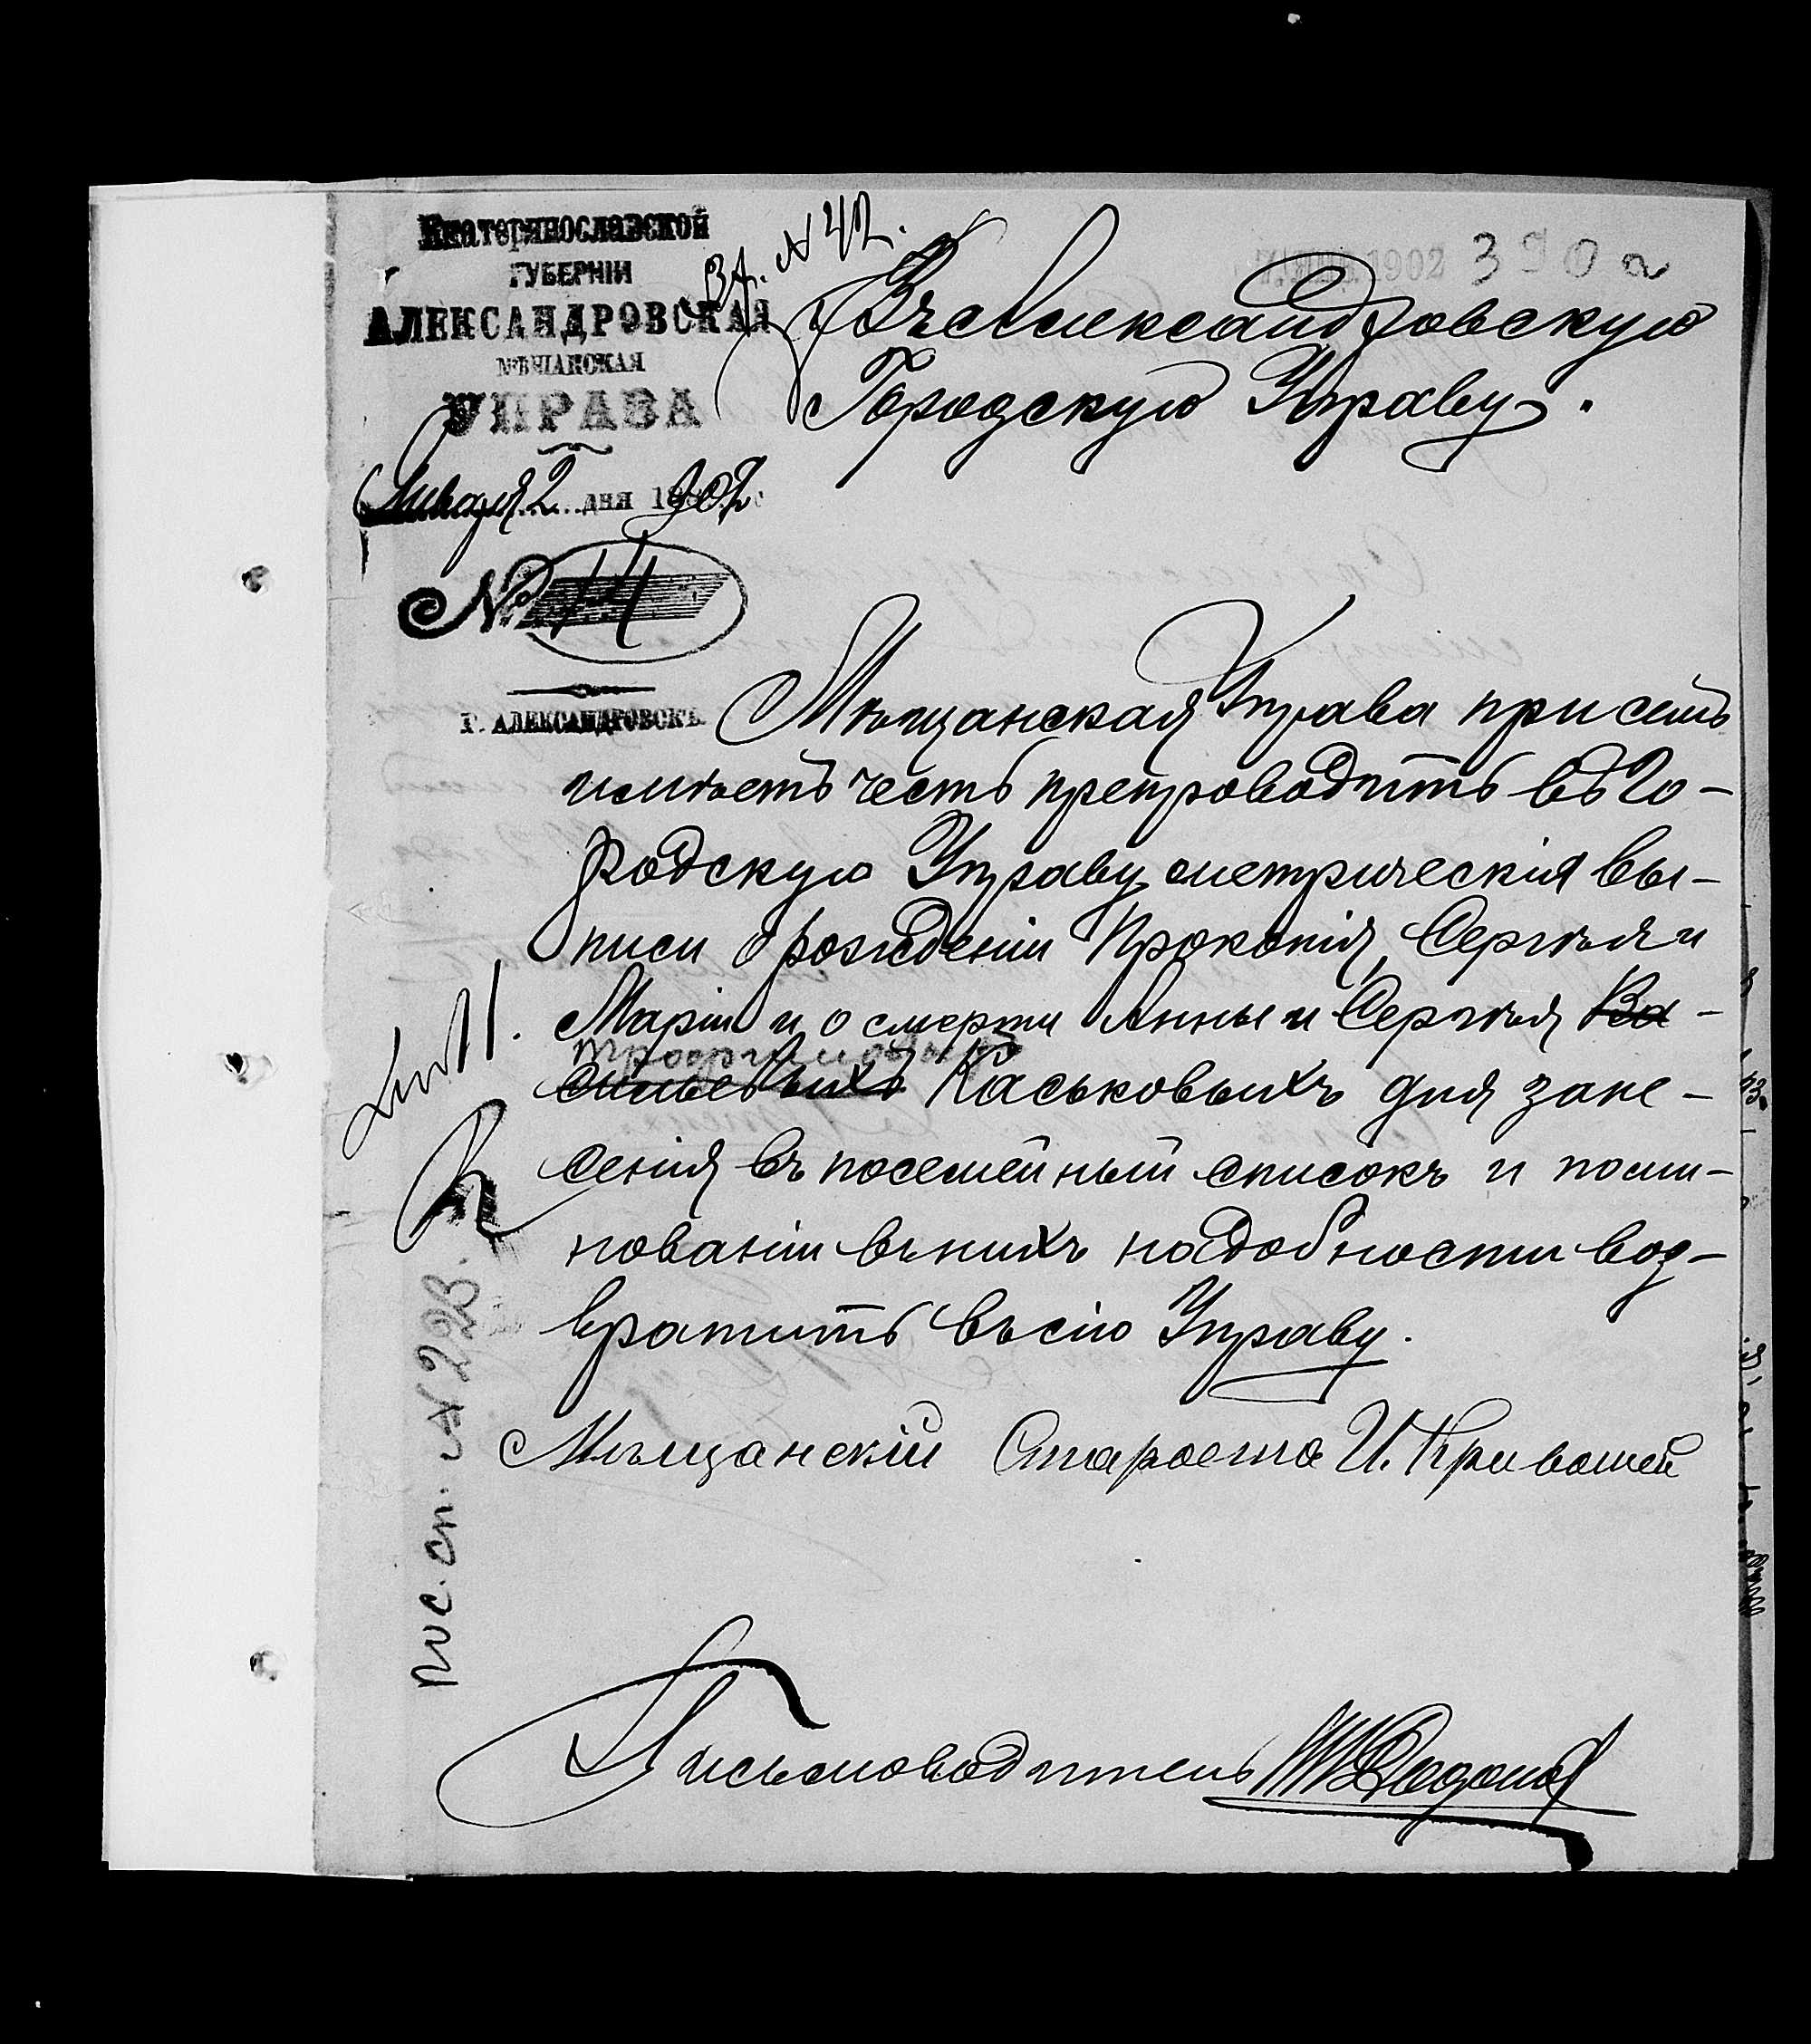 Екатеринославской
ГУБЕРНІИ
АЛЕКСАНДРОВСКАЯ
МѢЩАНСКАЯ
УПРАВА
Января 2 дня 1902
№ 14
Г. АЛЕКСАНДРОВСКЪ
Вх. №42.
1902 390 а
Въ Александровскую
Городскую Управу.
Мѣщанская Управа при семъ
имѣетъ честь препроводить въ Го-
родскую Управу метрическія вы-
писи о рожденіи Прокопія, Сергѣя и
Маріи и о смерти Анны и Сергѣя Ва-
сильевыхъ Каськовыхъ для зане-
сенія въ посемейный списокъ и поми-
нованіи въ нихъ надобности воз-
вратить въ сію Управу.
Мѣщанскій Староста И. Кривошей
Письмоводитель
пос. сп. №293.